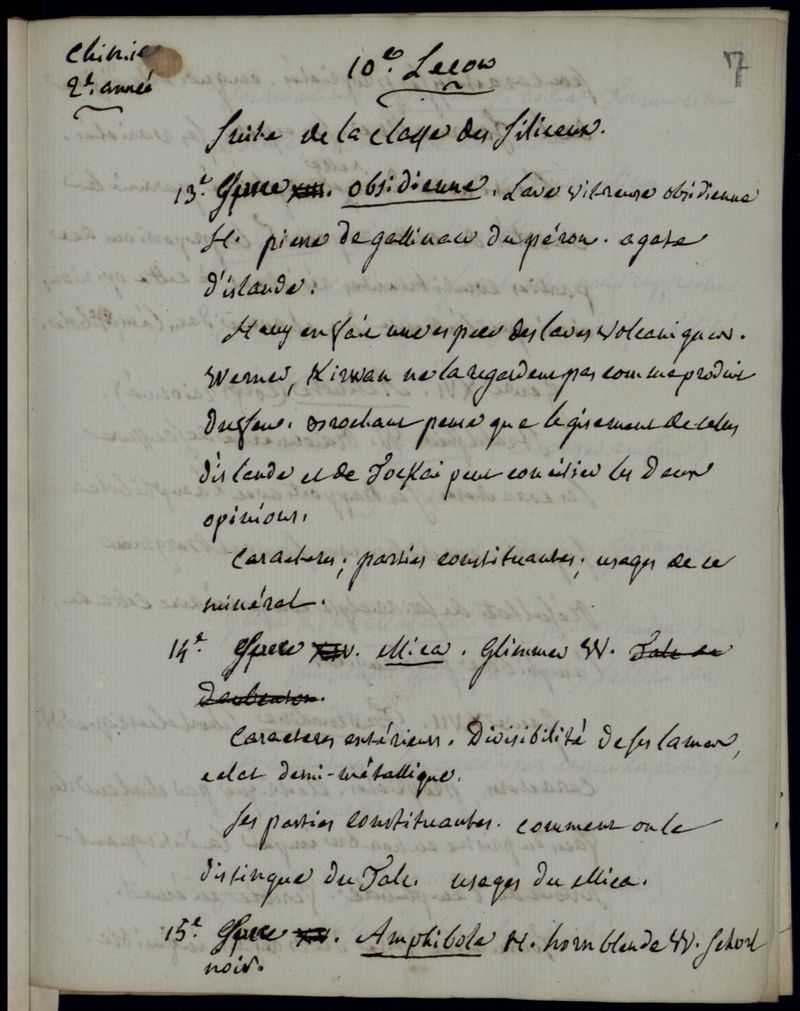 Chimie
2e. année
10e. Lecon
7
Suite de la classe des Siliceux.
13e. Espece XIII. obsidienne. Lave vitreuse obsidienne
H. pierre de gallinace du pérou. agate
d'islande.
Hauy en fait une espece des laves volcaniques.
Werner, Kirwan ne la regardent pas comme produit
du feu. Brochant pense que le gisement de celles
d'islande et de Tockai peut concilier les deux
opinions.
Caracteres; parties constituantes; usages de ce
minéral.
14e. Espece XIV. Mica. Glimmer W. Talc de
Daubenton.
Caracteres extérieurs. Divisibilité de ses lames,
eclat demi-métallique.
Ses parties constituantes. comment on le
distingue du Talc. usages du Mica.
15e. Espece XV. Amphibole H. hornblende W. Schorl
noir.